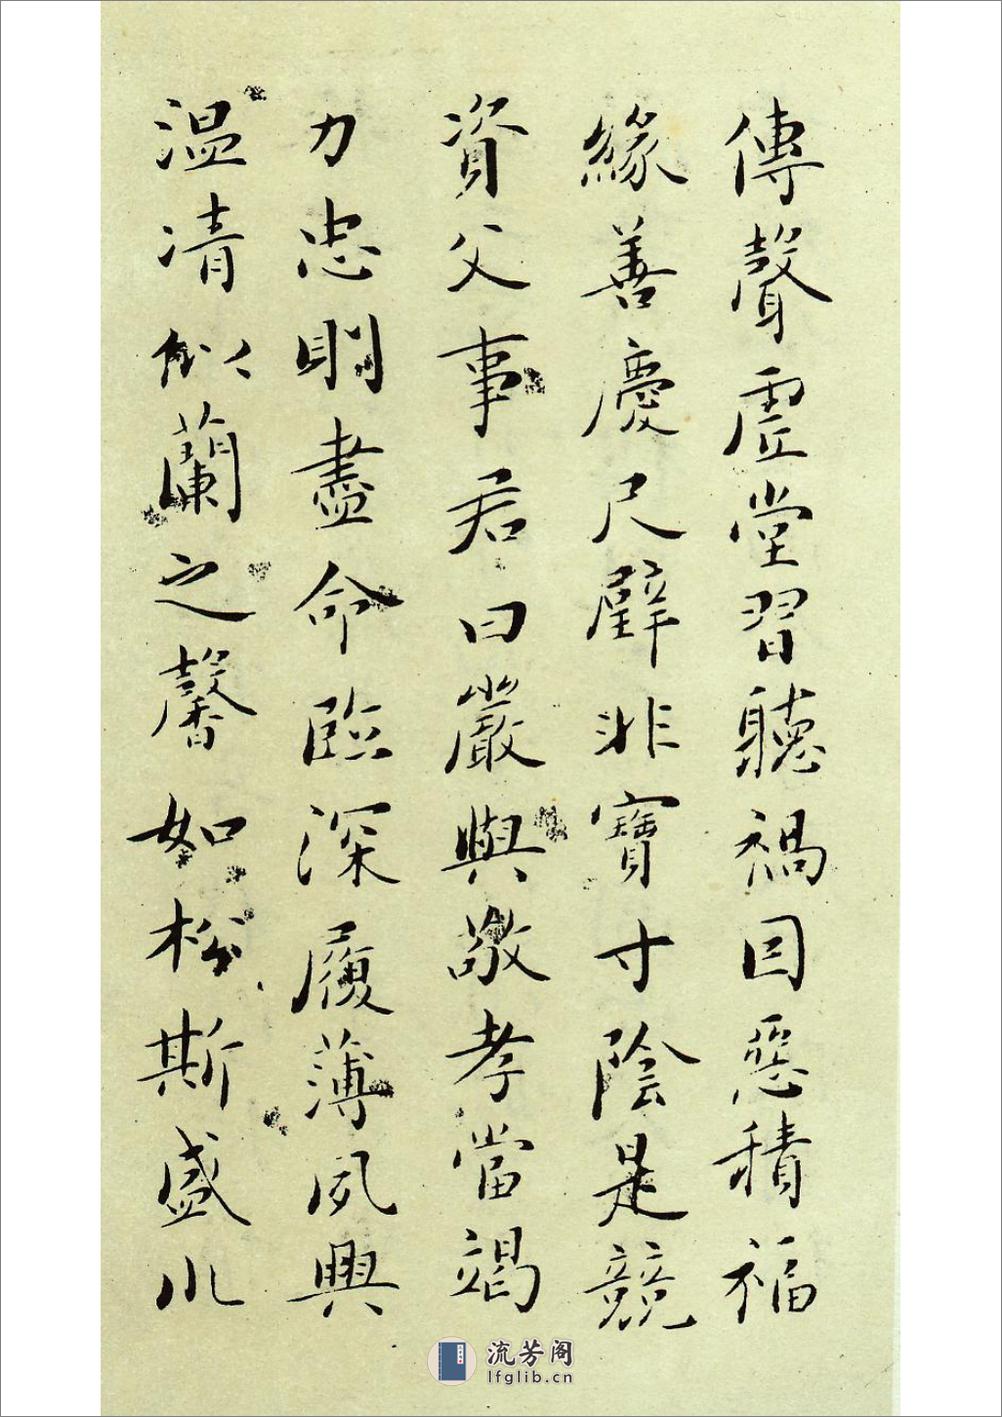 傳聲虛堂習聽禍因惡積福
緣善慶尺璧非寶寸陰是競
資父事君曰嚴與敬孝當竭
力忠則盡命臨深履薄夙興
温凊似蘭之馨如松斯盛川
流芳阁
lfglib.cn